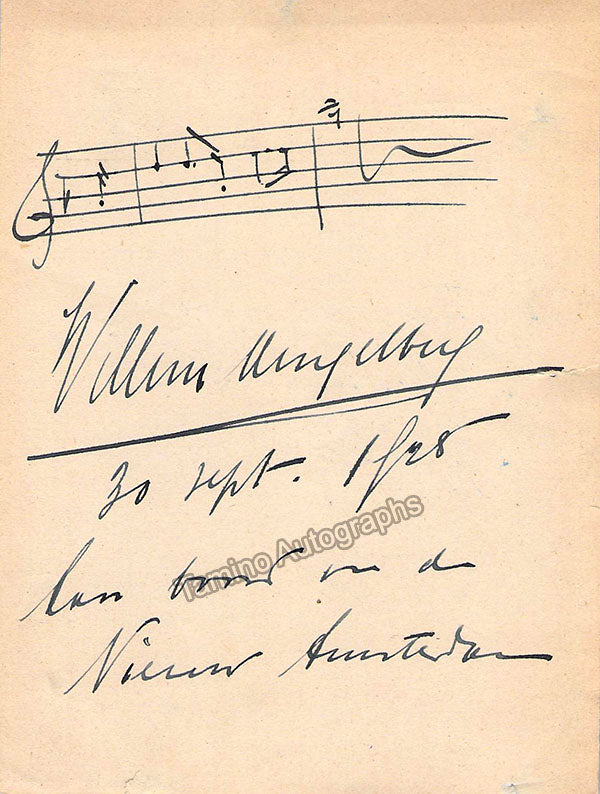 Willem Mengelberg
30 sept. 1928
Tamino Autographs
Aan boord van de
Nieuw Amsterdam